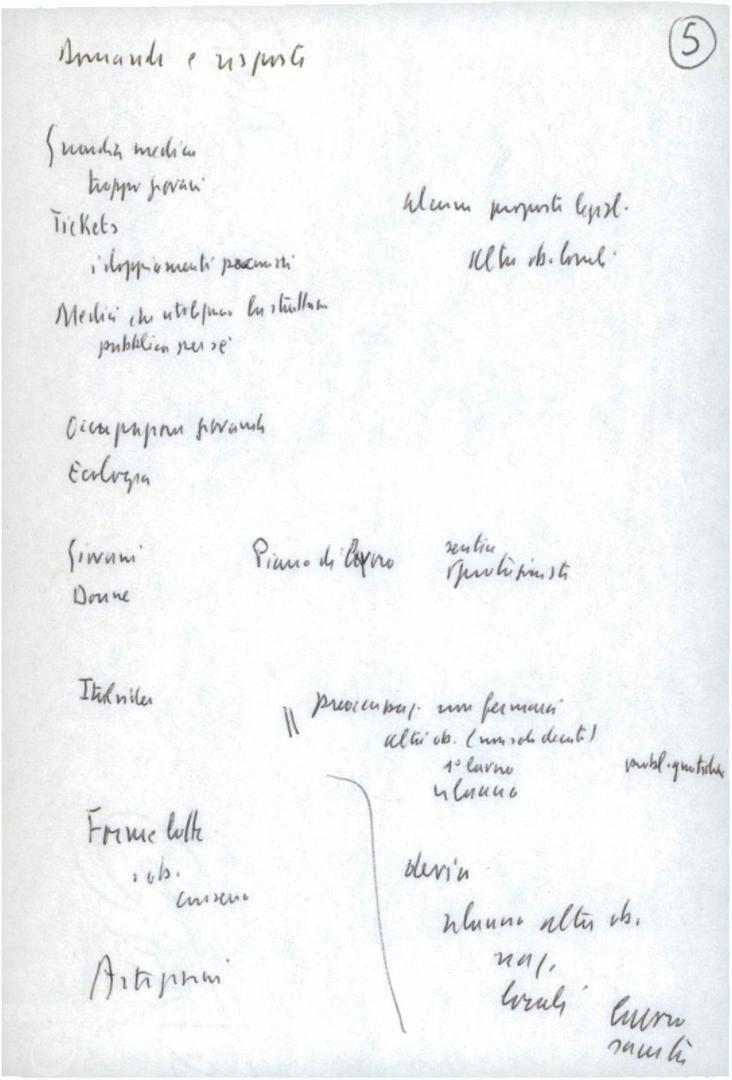 5
Domande e risposte
Guardia medica
troppo giovani
Tickets
alcune proposte legisl.
altri ob. locali
Medici che utilizzano le strutture
pubblica per sé
Occupazione giovanile
Ecologia
Giovani
Piano di lavoro
Donne
Italsider
preoccupaz. non fermarci
altri ob. (non solo decreti)
1° lavoro
rilancio
probl. quotidia
Forme lotta
ob.
consenso
deriva
rilancio altri ob.
naz.
locali
lavoro
sanità
Artigiani